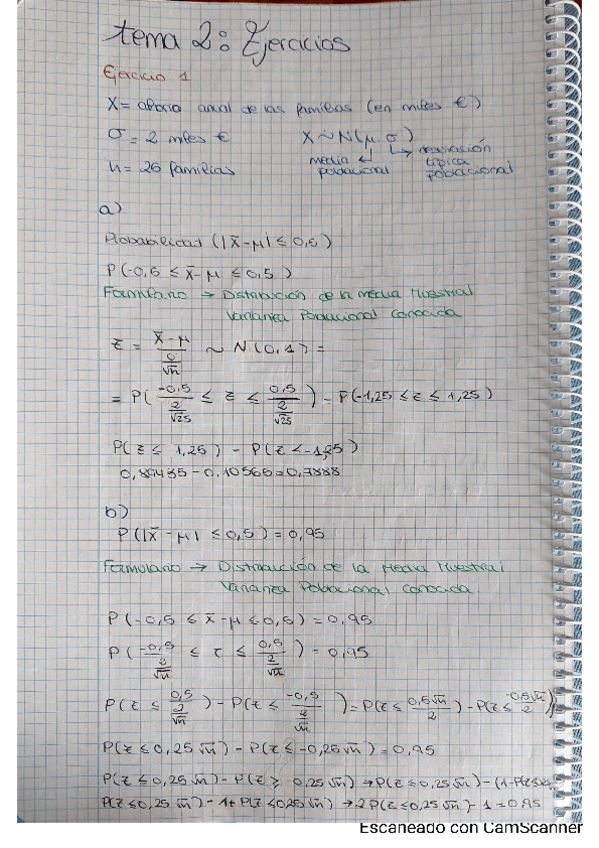 tema 2: Ejercicios
Ejercicio 1
X = ahorro anual de las familias (en miles €)
σ = 2 miles € X ~ N(μ, σ) → desviación
típica
poblacional
media
poblacional
n = 25 familias
a)
Probabilidad (|x̄-μ| ≤ 0,5)
P(-0,5 ≤ x̄-μ ≤ 0,5)
Formulario → Distribución de la media Muestral
Varianza Poblacional Conocida
z = (x̄-μ)/(σ/√n) ~ N(0,1) =
= P(-0,5/(2/√25) ≤ z ≤ 0,5/(2/√25)) = P(-1,25 ≤ z ≤ 1,25)
P(z ≤ 1,25) - P(z < -1,25)
0,89435 - 0,10565 = 0,7888
b)
P(|x̄-μ| ≤ 0,5) = 0,95
Formulario → Distribución de la Media Muestral
Varianza Poblacional Conocida
P(-0,5 ≤ x̄-μ ≤ 0,5) = 0,95
P(-0,5/(2/√n) ≤ z ≤ 0,5/(2/√n)) = 0,95
P(z ≤ 0,5/(2/√n)) - P(z ≤ -0,5/(2/√n)) = P(z ≤ 0,5√n/2) - P(z ≤ -0,5√n/2)
P(z ≤ 0,25√n) - P(z ≤ -0,25√n) = 0,95
P(z ≤ 0,25√n) - P(z ≥ 0,25√n) → P(z ≤ 0,25√n) - (1-P(z≤
P(z ≤ 0,25√n) - 1 + P(z ≤ 0,25√n) → 2P(z ≤ 0,25√n) - 1 = 0,95
Escaneado con CamScanner